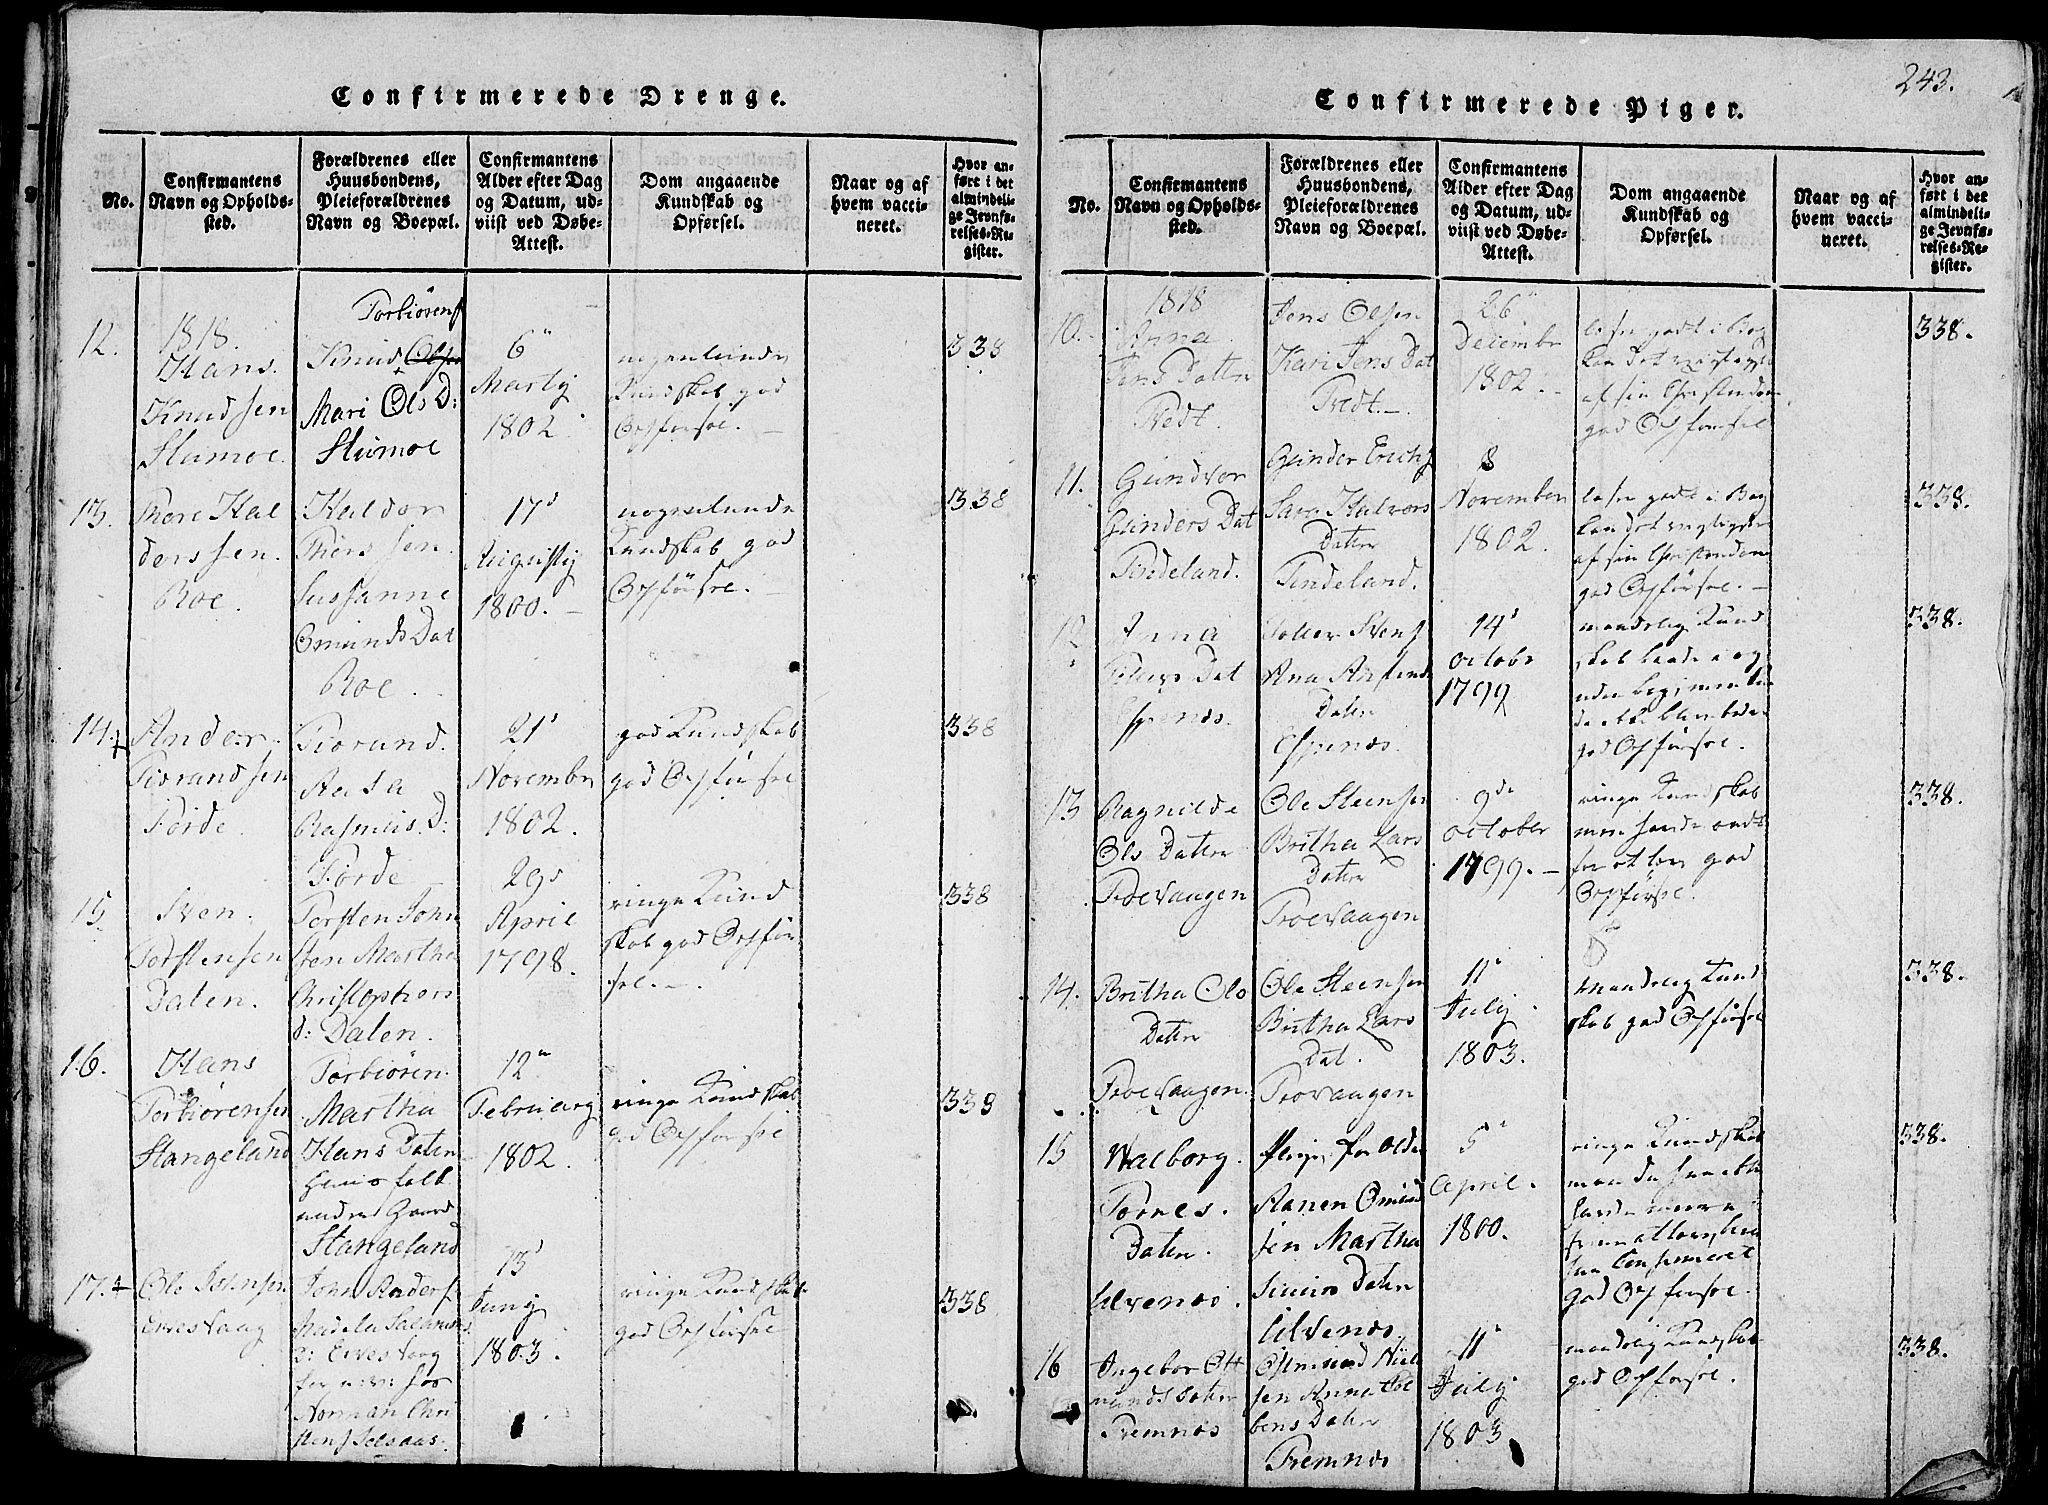 243.
Confirmerede Drenge.
No.
Confirmantens
Navn og Opholds-
sted.
Forældrenes eller
Huusbondens,
Pleieforældrenes
Navn og Boepæl.
Confirmantens
Alder efter Dag
og Datum, ud-
viist ved Døbe-
Attest.
Dom angaaende
Kundskab og
Opførsel.
Naar og af
hvem vacci-
neret.
Hvor an-
ført i det
almindeli-
ge Jevnfø-
relses-Re-
gister.
12.
1818.
Hans
Knudsen
Stumoe.
Torbiörens
Knud Olsen
Mari Ols D:
Stumoe
6
Martij
1802
nogenlunde
Kundskab god
Opförsel.
338
13.
Thore Hal
derssen.
Roe.
Haldor
Thorssen.
Sussanne
Omunds Dat
Roe.
17
Augustij
1800.
nogenlunde
Kundskab god
Opförsel.
338
14.
Ander
Tiorandsen
Förde.
Tiorand.
Aasa
Rasmus D:
Förde
21
November
1802.
god Kundskab
god Opförsel
338
15.
Sven.
Torstensen
Dalen.
Torsten John
sen Martha
Christophers
d: Dalen.
29
April
1798.
ringe Kund
skab god Opför
sel.
338
16.
Hans
Torbiörensen
Stangeland
Torbiören
Martha
Hans Daten
andre Gaard
Stangeland
12
Februarij
1802.
ringe Kundskab
god Opförsel
339
17.
Ole Jonsen
Ervesvaag
John Anders
Madela Salamons
D: Ervesvaag
Norman Chri
stens Selsaas.
13
Junij
1803.
ringe Kundskab
god Opförsel
338
Confirmerede Piger.
No.
Confirmantens
Navn og Opholds-
sted.
Forældrenes eller
Huusbondens,
Pleieforældrenes
Navn og Boepæl.
Confirmantens
Alder efter Dag
og Datum, ud-
viist ved Døbe-
Attest.
Dom angaaende
Kundskab og
Opførsel.
Naar og af
hvem vacci-
neret.
Hvor an-
ført i det
almindeli-
ge Jevnfø-
relses-Re-
gister.
10.
1818
Anna
Jens Daten
Tvedt.
Jens Olsen
Kari Jens Dat
Tvedt.
26
Decembr
1802.
læser godt i Bog
kan det vigtigste
af sin Christendom
god Opförsel
338.
11.
Gundvor
Gunders Dat
Tindeland.
Gunder Erichs
Sara Halvors
Daten
Tindeland.
8
November
1802.
læser godt i Bog
kan det vigtigste
af sin Christendom
god Opförsel.
338.
12
Anna
Dat
Espenes.
Daten
Espenes.
14
octobr
1799
maadelig Kund
god Opförsel.
338.
13
Ragnilde
Ols Daten
Troevaagen
Ole Steensen
Britha Lars
Daten
Troevaagen
9de
october
1799.
ringe Kundskab
god
Opförsel.
338.
14.
Britha Ols
Daten
Troevaagen.
Ole Steensen
Britha Lars
Dat.
Trovaagen
11
Julij
1803.
maadelig Kund
skab god Opförsel
338.
15
Walborg.
Tornes.
Daten.
Ulvenes.
Aanen Omund
sen Martha
Simons Daten
Ulvenes.
5
April.
1800.
ringe Kundskab
god Opförsel.
338.
16
Ingebor Ost
munds Daten
Tremnes
Ostmund Niel
sen Anna Tol
bens Daten
Tremnes
11
Julij
1803
maadelig Kundskab
god Opförsel.
338.